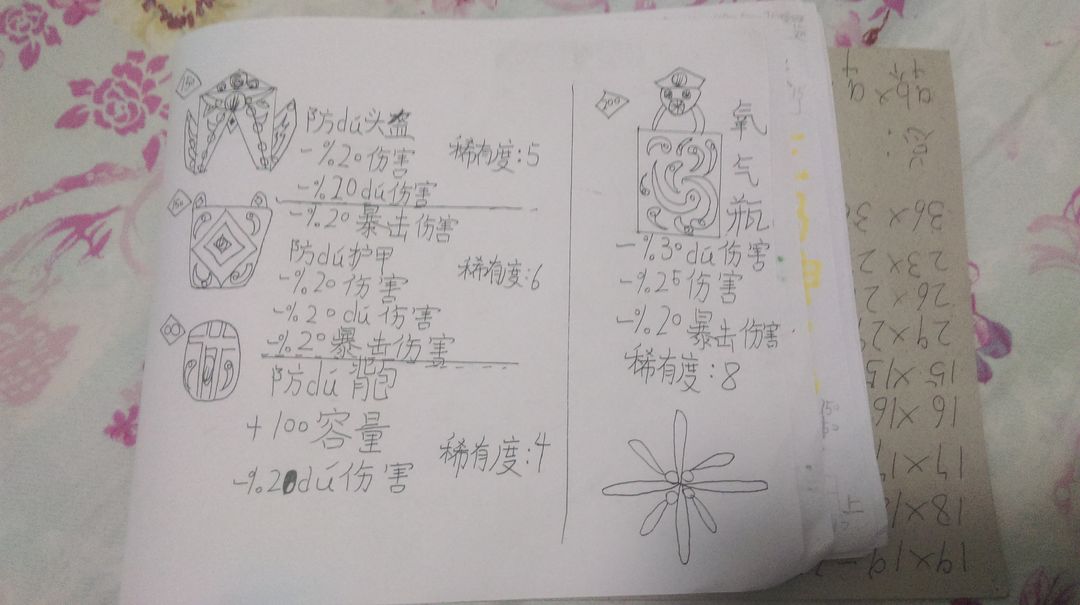 150
防dú头盔
-%20伤害
稀有度:5
-%20dú伤害
150
-%20暴击伤害
防dú护甲
稀有度:6
-%20伤害
-%20dú伤害
-%20暴击伤害
防dú背包
+100容量
稀有度:4
-%20dú伤害
200
氧气瓶
-%30dú伤害
-%20伤害
-%20暴击伤害
稀有度:8
36×
23×2
26×2
29×2
15×15
16×16
17×17
18×1
19×19